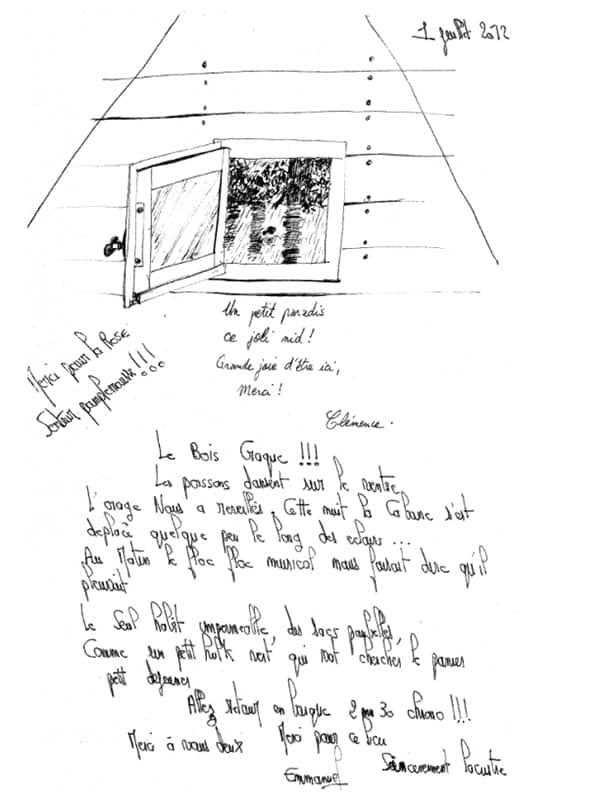 1 juillet 2012
Un petit paradis
ce joli nid !
Grande joie d'être ici,
Merci !
Clémence.
Merci pour la Rose
Senteur pamplemousse !!!
Le Bois Craque !!!
Les poissons dansent sur le ventre
L'orage Nous a reveillés. Cette nuit la Cabane s'est
deplacé quelque peu le long des eclairs ...
Au Matin le floc floc musical nous faisait dire qu'il
pleuvait
Le Seul habit impermeable, des sacs poubelles,
Comme un petit hulk vert qui va chercher le panier
petit dejeuner
Allez retour en barque 2 mn 30 chrono !!!
Merci à vous deux Merci pour ce lieu
Emmanuel Sincerement lacustre